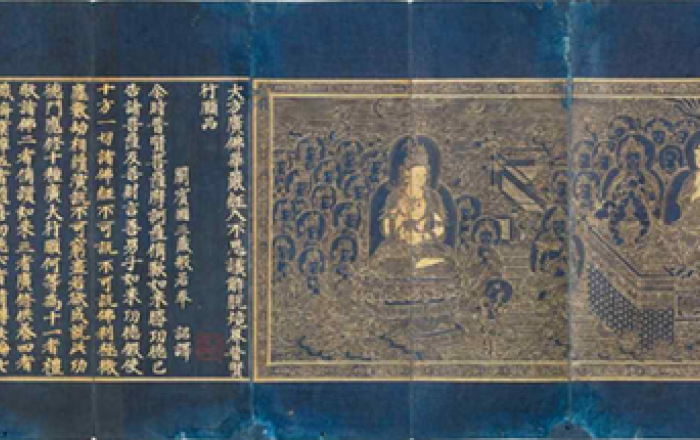 大方廣佛華嚴經入不思議解脫境界普賢
行願品
罽賓國三藏般若奉 詔譯
尒時普賢菩薩摩訶薩稱歎如來勝功德已
告諸菩薩及善財言善男子如來功德假使
十方一切諸佛經不可說不可說佛刹極微
塵數劫相續演說不可窮盡若欲成就此功
德門應修十種廣大行願何等為十一者禮
敬諸佛二者稱讚如來三者廣修供養四者